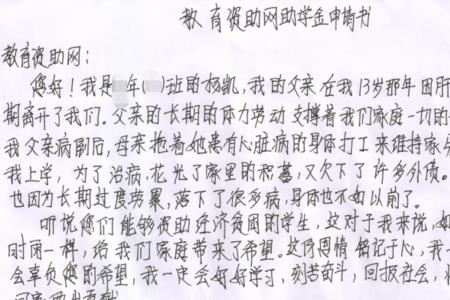 教育资助网助学金申请书
教育资助网：
您好！我是 年( )班的杨凯，我的父亲在我13岁那年因肝
期离开了我们。父亲的长期的体力劳动支撑着我们家庭一切的
我父亲病倒后，母亲拖着她患有心脏病的身体打工来维持家
我上学，为了治病，花光了家里的积蓄，又欠下了许多外债。
也因为长期过度劳累，落下了很多病，身体也不如以前了。
听说您们能够资助经济贫困的学生，这对于我来说，
时雨一样，给我们家庭带来了希望。这份恩情铭记于心，我一
会辜负您的希望，我一定会好好学习，刻苦奋斗，回报社会，